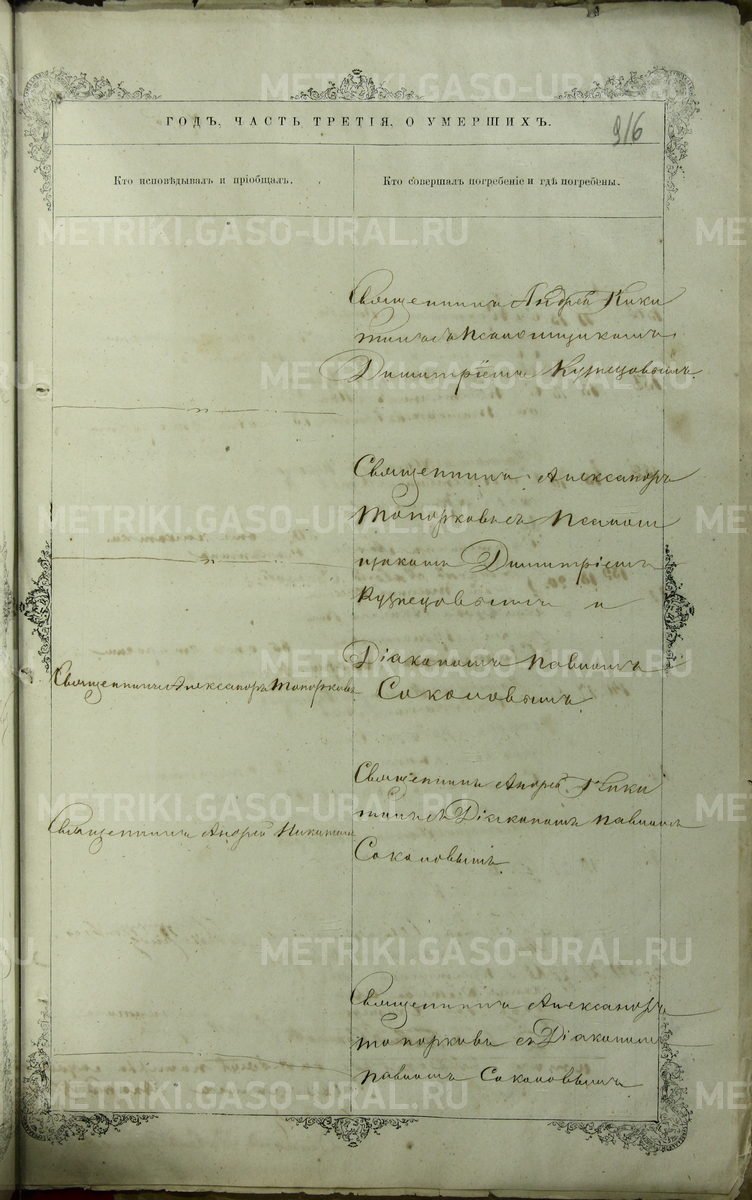 ГОДЪ, ЧАСТЬ ТРЕТІЯ, О УМЕРШИХЪ.
916
Кто исповѣдывалъ и пріобщалъ.
Кто совершалъ погребеніе и гдѣ погребены.
Священникъ Андрей Ники
тинъ съ Псаломщикомъ
Димитріемъ Кузнецовымъ.
Священникъ Александръ
Топорковъ съ Псалом
щикомъ Димитріемъ
Кузнецовымъ и
Діакономъ Павломъ
Соколовымъ
Священникъ Александръ Топорковъ
Священникъ Андрей Ники
тинъ съ Діакономъ Павломъ
Соколовымъ.
Священникъ Андрей Никитинъ
Священникъ Александръ
Топорковъ съ Діакономъ
Павломъ Соколовымъ
METRIKI.GASO-URAL.RU